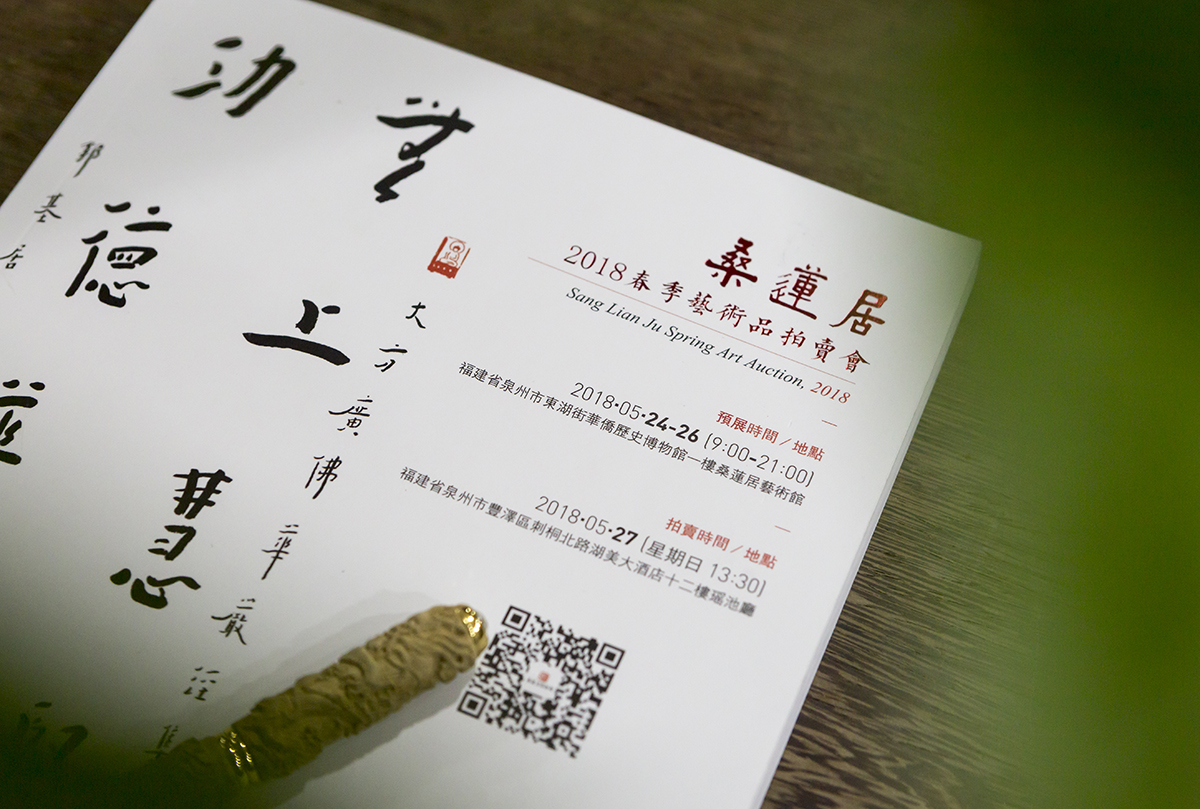 桑蓮居
2018春季藝術品拍賣會
Sang Lian Ju Spring Art Auction, 2018
預展時間／地點
2018·05·24-26 (9:00-21:00)
福建省泉州市東湖街華僑歷史博物館一樓桑蓮居藝術館
拍賣時間／地點
2018·05·27 (星期日 13:30)
福建省泉州市豐澤區刺桐北路湖美大酒店十二樓瑶池廳
大方廣佛華嚴經集
無上慧
功德
基居